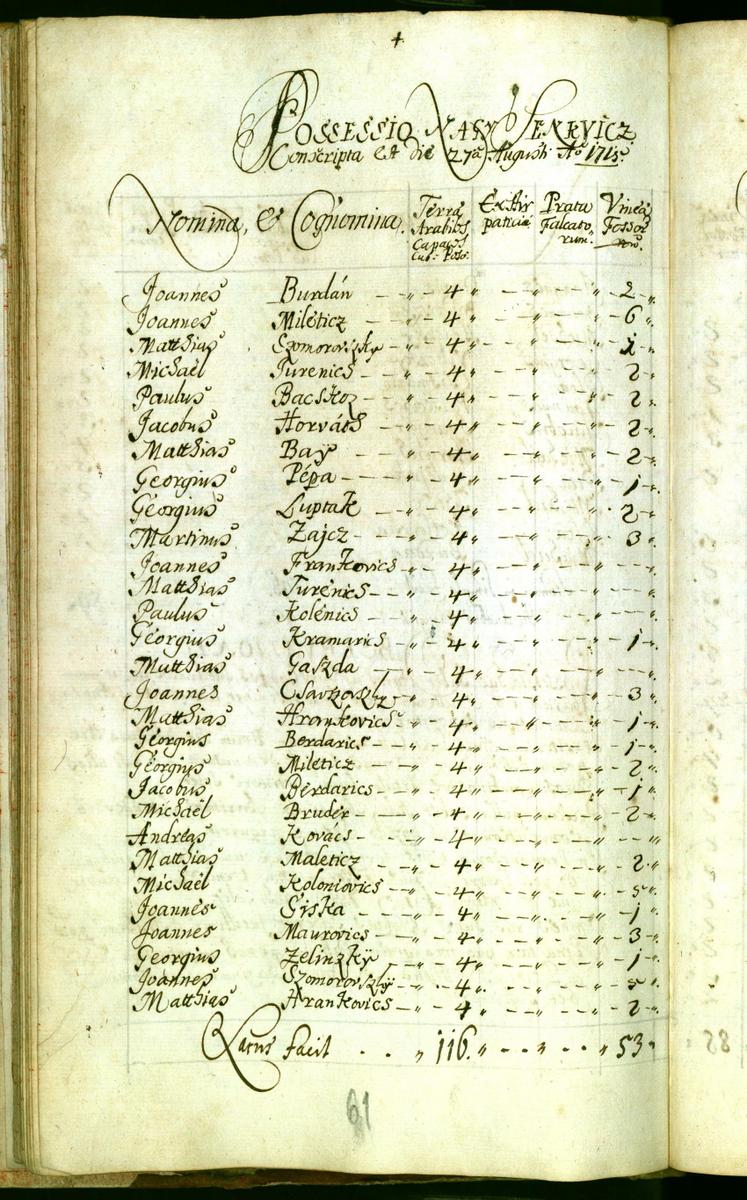 +
Possessio Nagy Senkvicz
Conscripta est die 27a Augusti Ao 1715.
Nomina, & Cognomina. Terrae Arabiles Capaces Cub: Poson. Exstirpatitiae Prata Falcatorum. Vineae Fossorum.
Joannes Burdán — „ — 4 „ — „ — „ 2 „
Joannes Miléticz — „ — 4 „ — „ — „ 6 „
Matthias Szomorovszky — „ — 4 „ — „ — „ 1 „
Michaël Turenics — „ — 4 „ — „ — „ 2 „
Paulus Bacskoz — „ — 4 „ — „ — „ 2 „
Jacobus Horváth — „ — 4 „ — „ — „ 2 „
Matthias Baÿ — „ — 4 „ — „ — „ 2 „
Georgius Pépa — „ — 4 „ — „ — „ 1 „
Georgius Luptak — „ — 4 „ — „ — „ 2 „
Martinus Zajcz — „ — 4 „ — „ — „ 3 „
Joannes Frankovics — „ — 4 „ — „ — „ — „
Matthias Turénics — „ — 4 „ — „ — „ — „
Paulus Kolénics — „ — 4 „ — „ — „ — „
Georgius Kramarics — „ — 4 „ — „ — „ 1 „
Matthias Gaszda — „ — 4 „ — „ — „ — „
Joannes — „ — 4 „ — „ — „ 3 „
Matthias Hrankovics — „ — 4 „ — „ — „ 1 „
Georgius Berdarics — „ — 4 „ — „ — „ 1 „
Georgius Miléticz — „ — 4 „ — „ — „ 2 „
Jacobus Bérdarics — „ — 4 „ — „ — „ 1 „
Michaël Brudér — „ — 4 „ — „ — „ 2 „
Andreas Kovács — „ — 4 „ — „ — „ — „
Matthias Maleticz — „ — 4 „ — „ — „ 2 „
Michaël Koloniovics — „ — 4 „ — „ — „ 5 „
Joannes Giska — „ — 4 „ — „ — „ 1 „
Joannes Maurovics — „ — 4 „ — „ — „ 3 „
Georgius Zelinzkÿ — „ — 4 „ — „ — „ 1 „
Joannes Szomorovszkÿ — „ — 4 „ — „ — „ 5 „
Matthias Hrankovics — „ — 4 „ — „ — „ 2 „
Latus facit . . „ 116. „ . . „ . . „ 53 „
61